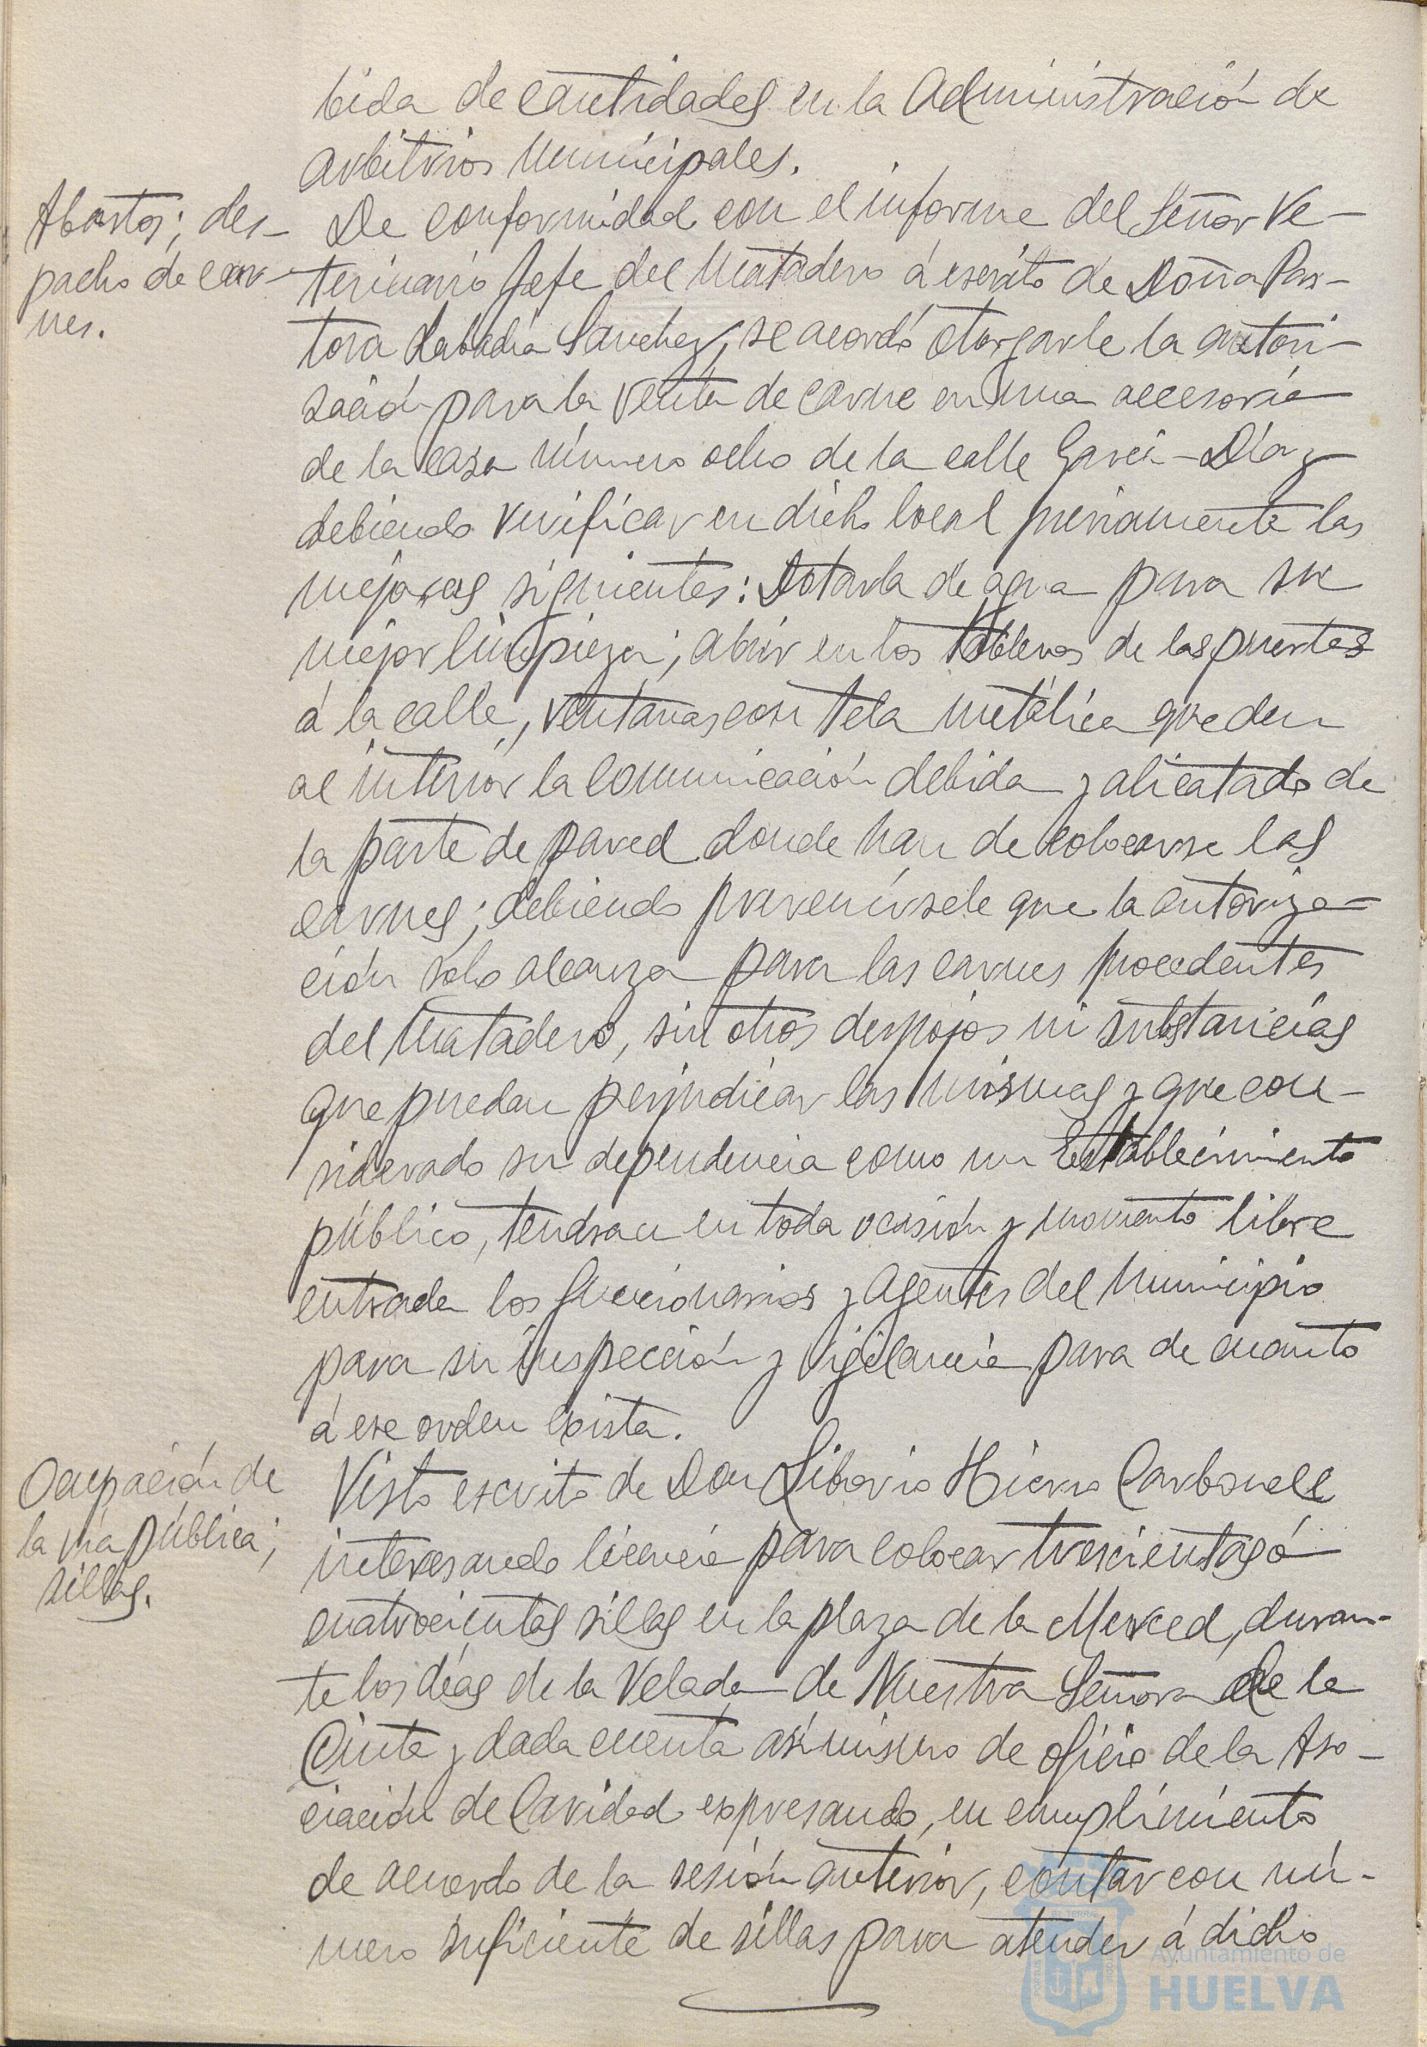 bida de cantidades en la Administración de
arbitrios Municipales.
Abastos; des-
pacho de car-
nes.
De conformidad con el informe del Señor Ve-
terinario Jefe del Matadero á escrito de Doña Pas-
tora Labadía Sanchez, se acordó otorgarle la autori-
zación para la venta de carne en una accesoria
de la casa número ocho de la calle Garci-Díaz
debiendo verificar en dicho local previamente las
mejoras siguientes: Dotarla de agua para su
mejor limpieza; abrir en los tableros de las puertas
á la calle, ventanas con tela metálica que den
al interior la comunicación debida y alicatado de
la parte de pared donde han de colocarse las
carnes; debiendo prevenírsele que la autoriza-
ción solo alcanza para las carnes procedentes
del Matadero, sin otros despojos ni substancias
que puedan perjudicar las mismas y que con-
siderado su dependencia como un Establecimiento
público, tendran en toda ocasión y momento libre
entrada los funcionarios y agentes del Municipio
para su inspección y vigilancia para de cuanto
á ese orden exista.
Ocupación de
la vía pública;
sillas.
Visto escrito de Don Liborio Hierro Carbonell
interesando licencia para colocar trescientas ó
cuatrocientas sillas en la plaza de la Merced, duran-
te los días de la Velada de Nuestra Señora de la
Cinta y dada cuenta asimismo de oficio de la Aso-
ciación de Caridad expresando, en cumplimiento
de acuerdo de la sesión anterior, contar con nú-
mero suficiente de sillas para atender á dicho
Ayuntamiento de
HUELVA